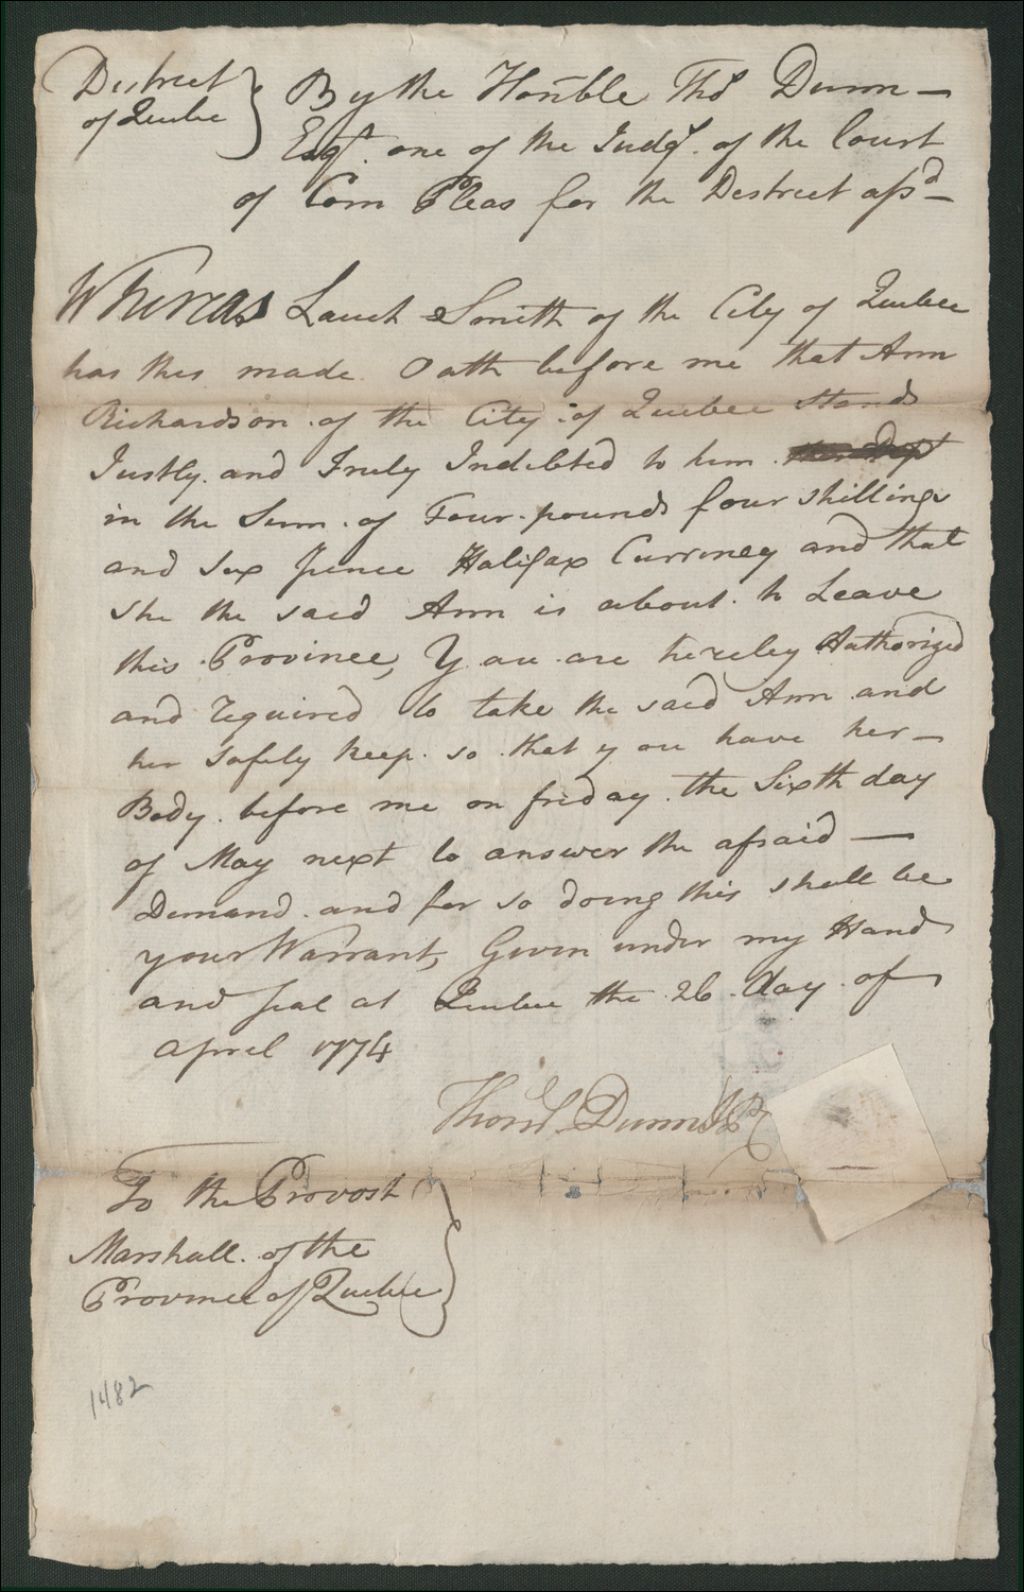 District
of Quebec
By the Honble Thos Dunn —
Esqr. one of the Judgs. of the Court
of Com Pleas for the District afsd —
Whereas Lauch Smith of the City of Quebec
has this made Oath before me that Ann
Richardson of the City of Quebec Stands
Justly and Truly Indebted to him
in the Sum of Four pounds four shillings
and six pence Halifax Currency and that
she the said Ann is about to Leave
this Province, You are hereby Authorized
and required to take the said Ann and
her Safely keep so that you have her —
Body before me on friday the Sixth day
of May next to answer the afsaid —
Demand and for so doing this shall be
your Warrant, Given under my Hand
and seal at Quebec the 26 day of
April 1774
Thoms Dunn
To the Provost
Marshall of the
Province of Quebec
1482